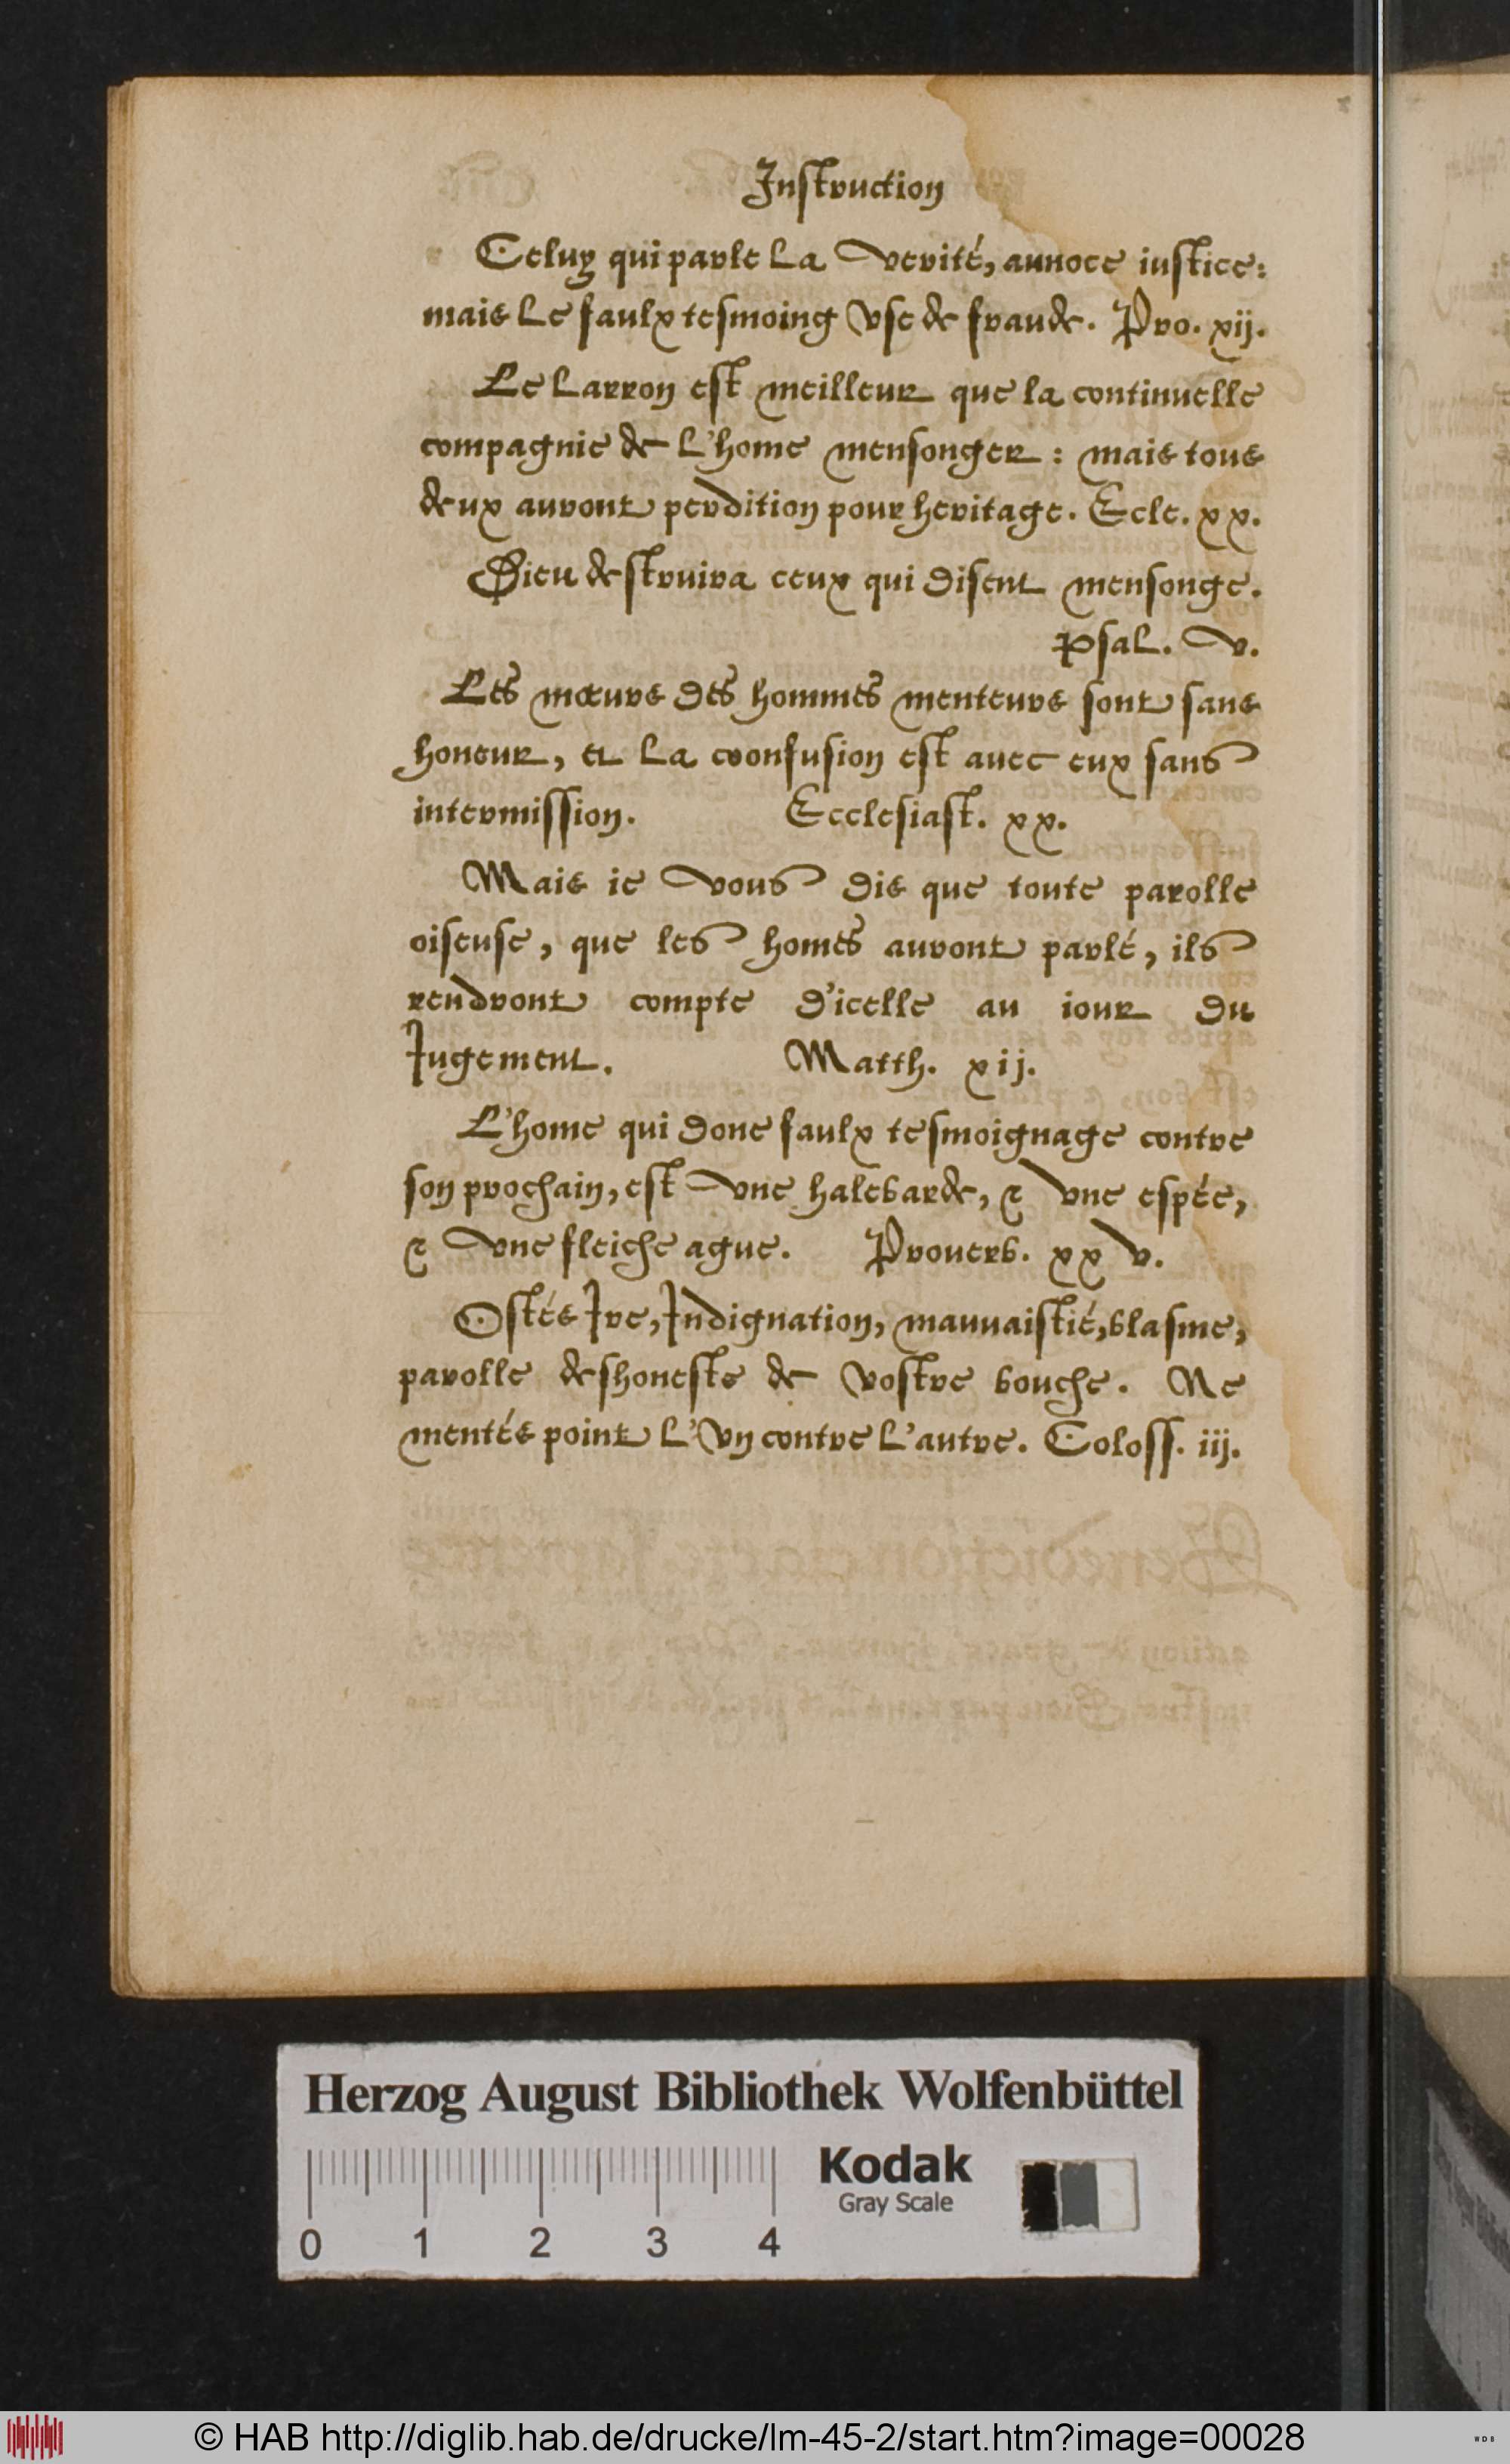 Instruction
Celuy qui parle la verité, annoce iustice:
mais le faulx tesmoing vse de fraude. Pro. xij.
Le larron est meilleur que la continuelle
compagnie de l'home mensonger : mais tous
deux auront perdition pour heritage. Ecle. xx.
Dieu destruira ceux qui disent mensonge.
Psal. v.
Les mœurs des hommes menteurs sont sans
honeur, et la coonfusion est auec eux sans
intermission. Ecclesiast. xx.
Mais ie vous dis que toute parolle
oiseuse, que les homes auront parlé, ils
rendront compte d'icelle au iour du
Jugement. Matth. xij.
L'home qui done faulx tesmoignage contre
son prochain, est vne halebarde, & vne espée,
& vne fleiche ague. Prouerb. xxv.
Ostés Ire, Indignation, mauuaistié, blasme,
parolle deshoneste de vostre bouche. Ne
mentés point l'vn contre l'autre. Coloss. iij.
Herzog August Bibliothek Wolfenbüttel
Kodak
Gray Scale
0 1 2 3 4
© HAB http://diglib.hab.de/drucke/lm-45-2/start.htm?image=00028